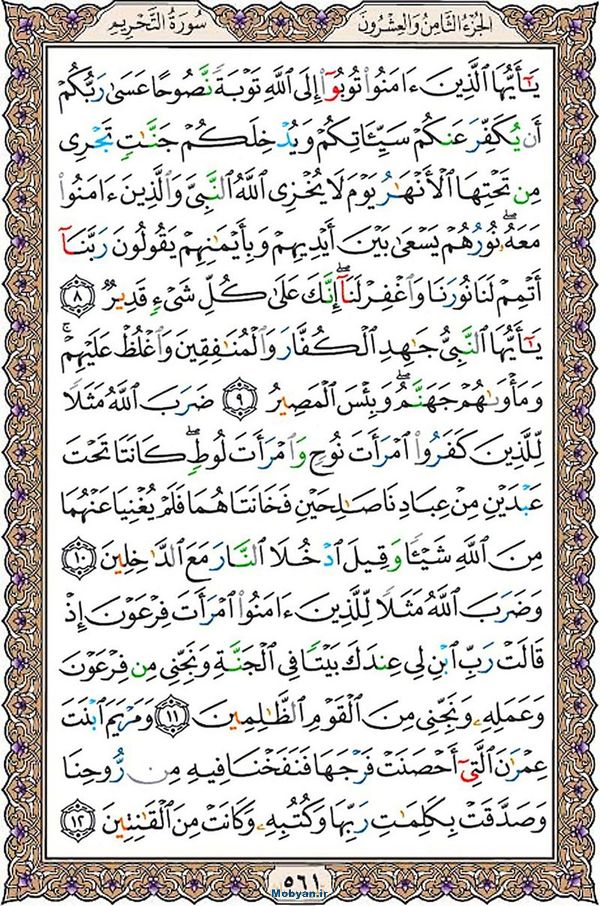 الجزء الثامن والعشرون سورة التحريم
يَٰٓأَيُّهَا ٱلَّذِينَ ءَامَنُوا۟ تُوبُوٓا۟ إِلَى ٱللَّهِ تَوْبَةً نَّصُوحًا عَسَىٰ رَبُّكُمْ
أَن يُكَفِّرَ عَنكُمْ سَيِّـَٔاتِكُمْ وَيُدْخِلَكُمْ جَنَّٰتٍ تَجْرِى
مِن تَحْتِهَا ٱلْأَنْهَٰرُ يَوْمَ لَا يُخْزِى ٱللَّهُ ٱلنَّبِىَّ وَٱلَّذِينَ ءَامَنُوا۟
مَعَهُۥ ۖ نُورُهُمْ يَسْعَىٰ بَيْنَ أَيْدِيهِمْ وَبِأَيْمَٰنِهِمْ يَقُولُونَ رَبَّنَآ
أَتْمِمْ لَنَا نُورَنَا وَٱغْفِرْ لَنَآ ۖ إِنَّكَ عَلَىٰ كُلِّ شَىْءٍ قَدِيرٌ ٨
يَٰٓأَيُّهَا ٱلنَّبِىُّ جَٰهِدِ ٱلْكُفَّارَ وَٱلْمُنَٰفِقِينَ وَٱغْلُظْ عَلَيْهِمْ ۚ
وَمَأْوَىٰهُمْ جَهَنَّمُ ۖ وَبِئْسَ ٱلْمَصِيرُ ٩ ضَرَبَ ٱللَّهُ مَثَلًا
لِّلَّذِينَ كَفَرُوا۟ ٱمْرَأَتَ نُوحٍ وَٱمْرَأَتَ لُوطٍ ۖ كَانَتَا تَحْتَ
عَبْدَيْنِ مِنْ عِبَادِنَا صَٰلِحَيْنِ فَخَانَتَاهُمَا فَلَمْ يُغْنِيَا عَنْهُمَا
مِنَ ٱللَّهِ شَيْـًٔا وَقِيلَ ٱدْخُلَا ٱلنَّارَ مَعَ ٱلدَّٰخِلِينَ ١٠
وَضَرَبَ ٱللَّهُ مَثَلًا لِّلَّذِينَ ءَامَنُوا۟ ٱمْرَأَتَ فِرْعَوْنَ إِذْ
قَالَتْ رَبِّ ٱبْنِ لِى عِندَكَ بَيْتًا فِى ٱلْجَنَّةِ وَنَجِّنِى مِن فِرْعَوْنَ
وَعَمَلِهِۦ وَنَجِّنِى مِنَ ٱلْقَوْمِ ٱلظَّٰلِمِينَ ١١ وَمَرْيَمَ ٱبْنَتَ
عِمْرَٰنَ ٱلَّتِىٓ أَحْصَنَتْ فَرْجَهَا فَنَفَخْنَا فِيهِ مِن رُّوحِنَا
وَصَدَّقَتْ بِكَلِمَٰتِ رَبِّهَا وَكُتُبِهِۦ وَكَانَتْ مِنَ ٱلْقَٰنِتِينَ ١٢
٥٦١
Mobyan.ir